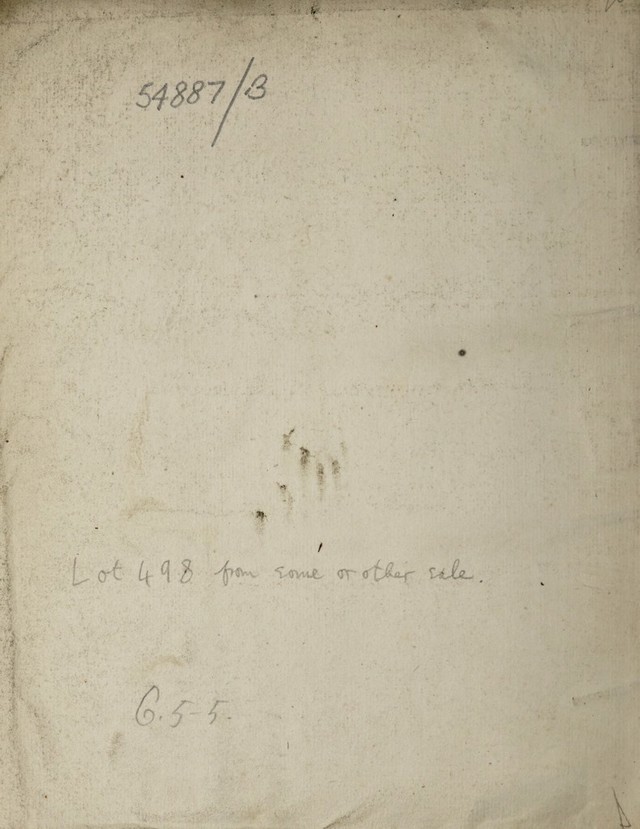 54887/B
Lot 498 from some or other sale.
6.5-5.